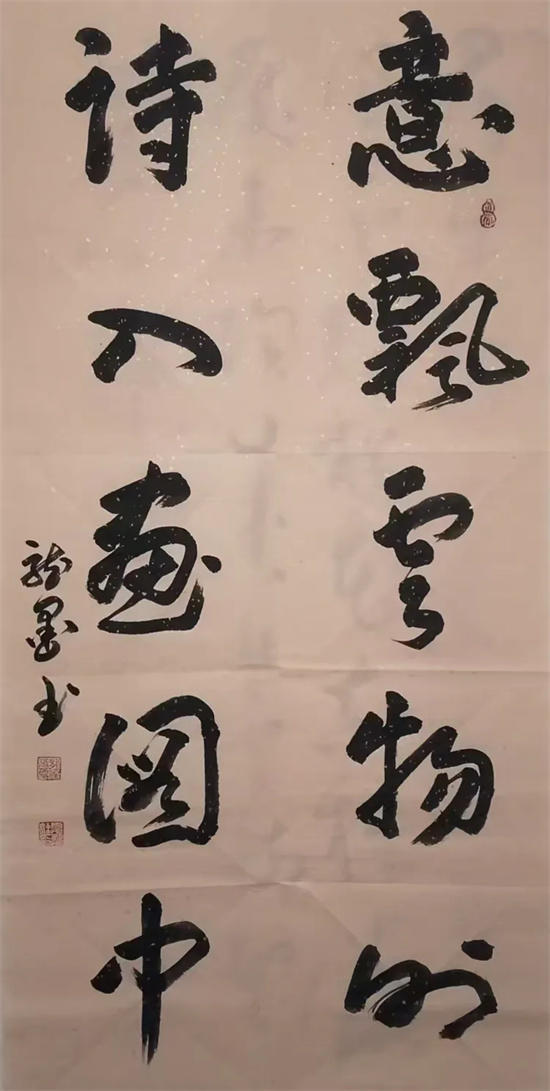 意飘云物外
诗入画图中
龙墨书